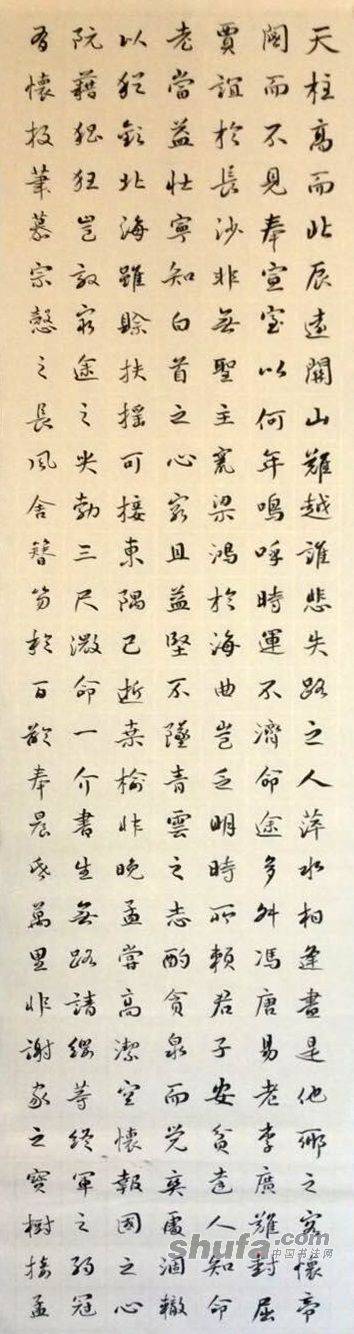 天柱高而北辰遠關山難越誰悲失路之人萍水相逢盡是他鄉之客懷帝
閽而不見奉宣室以何年嗚呼時運不濟命途多舛馮唐易老李廣難封屈
賈誼於長沙非無聖主竄梁鴻於海曲豈乏明時所賴君子安貧達人知命
老當益壯寧知白首之心窮且益堅不墜青雲之志酌貪泉而覺爽處涸轍
以猶歡北海雖賒扶搖可接東隅已逝桑榆非晚孟嘗高潔空懷報國之心
阮藉猖狂豈效窮途之哭勃三尺微命一介書生無路請纓等終軍之弱冠
有懷投筆慕宗愨之長風舍簪笏於百齡奉晨昏萬里非謝家之寶樹接孟
shufa.com
中国书法网